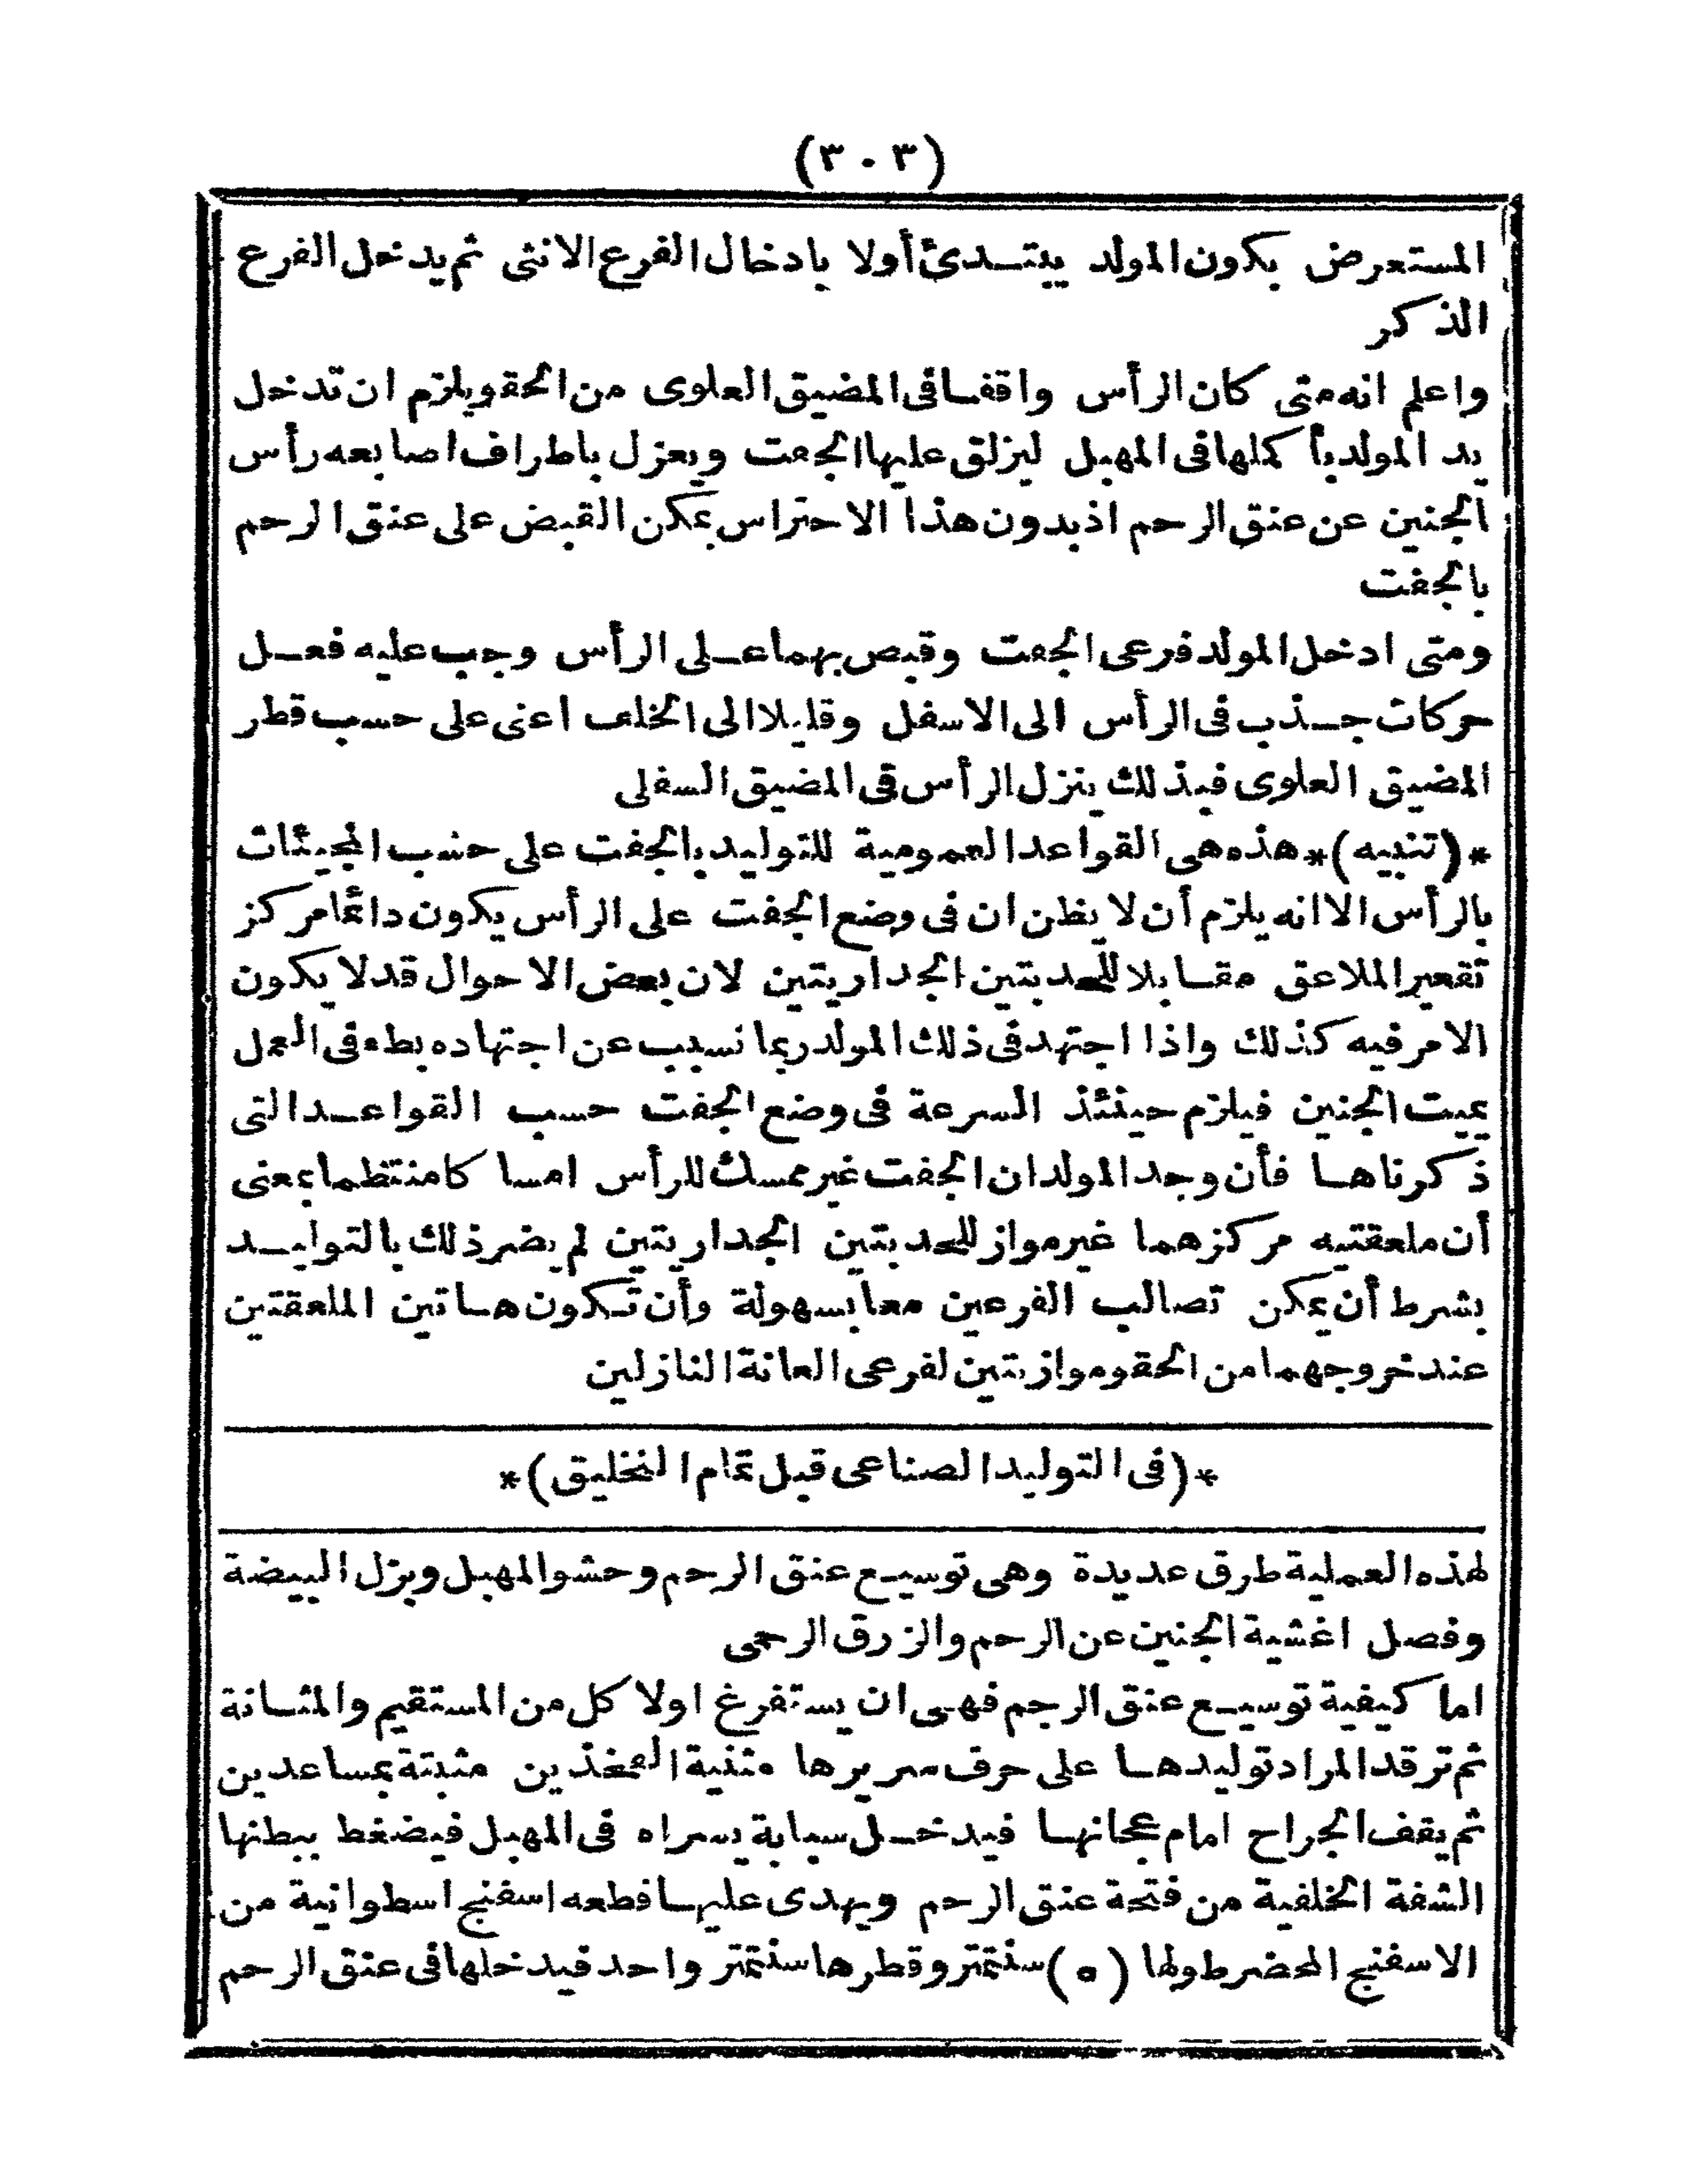 (٣٠٣)
المستعرض يكون المولد يبتدئ أولا بادخال الفرع الانثى ثم يدخل الفرع
الذكر
واعلم انه متى كان الرأس واقفا فى المضيق العلوى من الحقو يلزم ان تدخل
يد المولد بأكملها فى المهبل ليزلق عليها الجفت ويعزل باطراف اصابعه رأس
الجنين عن عنق الرحم اذ بدون هذا الاحتراس يمكن القبض على عنق الرحم
بالجفت
ومتى ادخل المولد فرعى الجفت وقبص بهما على الرأس وجب عليه فعل
حركات جذب فى الرأس الى الاسفل وقليلا الى الخلف اعنى على حسب قطر
المضيق العلوى فبذلك ينزل الرأس فى المضيق السفلى
*(تنبيه)* هذه هى القواعد العمومية للتوليد بالجفت على حسب المجيئات
بالرأس الا انه يلزم أن لا يظن ان فى وضع الجفت على الرأس يكون دائما مركز
تقعير الملاعق مقابلا للحدبتين الجداريتين لان بعض الاحوال قد لا يكون
الامر فيه كذلك واذا اجتهد فى ذلك المولد ربما نسبب عن اجتهاده بطء فى العمل
يميت الجنين فيلزم حينئذ السرعة فى وضع الجفت حسب القواعد التى
ذكرناها فأن وجد المولد ان الجفت غير ممسك للرأس امساكا منتظما بمعنى
أن ملعقتيه مركزهما غير مواز للحدبتين الجداريتين لم يضر ذلك بالتوليد
بشرط أن يمكن تصالب الفرعين معا بسهولة وأن تكون هاتين الملعقتين
عند خروجهما من الحقو موازيتين لفرعى العانة النازلين
*(فى التوليد الصناعى قبل تمام التخليق)*
لهذه العملية طرق عديدة وهى توسيع عنق الرحم وحشو المهبل وبزل البيضة
وفصل اغشية الجنين عن الرحم والزرق الرحمى
اما كيفية توسيع عنق الرجم فهى ان يستفرغ اولا كل من المستقيم والمثانة
ثم ترقد المراد توليدها على حرف سريرها مثنية الفخذين مثبتة بمساعدين
ثم يقف الجراح امام عجانها فيدخل سبابة يسراه فى المهبل فيضغط ببطنها
الشفة الخلفية من فتحة عنق الرحم ويهدى عليها قطعه اسفنج اسطوانية من
الاسفنج المحضر طولها (٥) سنتمتر وقطرها سنتمتر واحد فيدخلها فى عنق الرحم